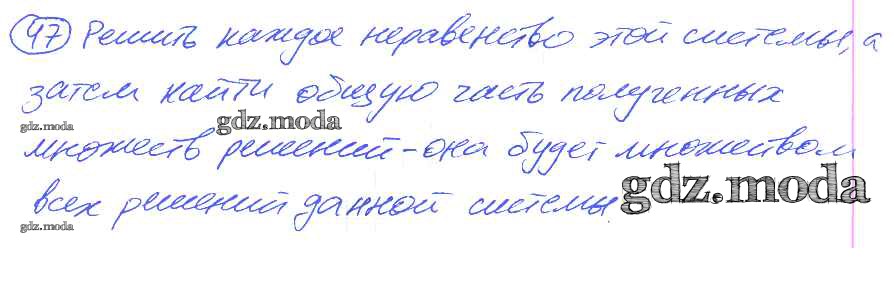 47 Решить каждое неравенство этой системы, а
затем найти общую часть полученных
gdz.moda gdz.moda
множеств решений - она будет множеством
gdz.moda
всех решений данной системы.
gdz.moda